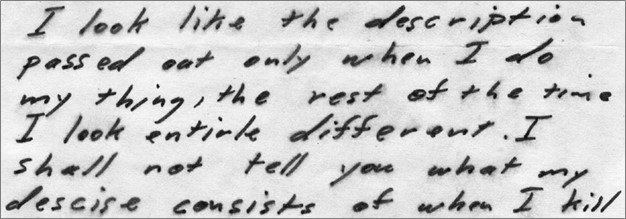 I look like the description
passed out only when I do
my thing, the rest of the time
I look entirle different. I
shall not tell you what my
descise consists of when I kill